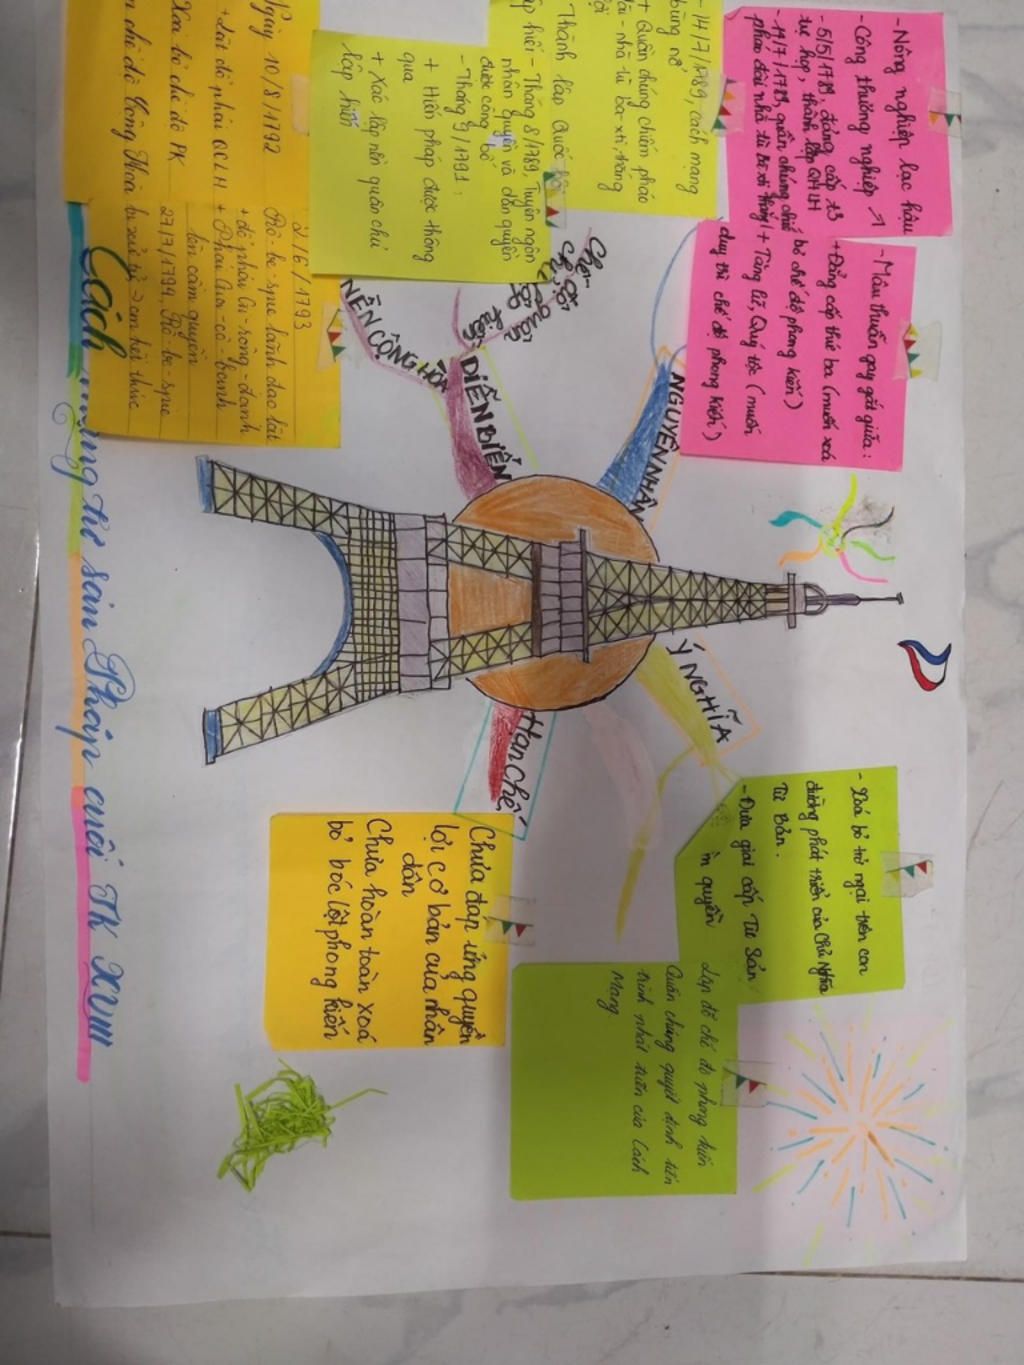 Cách mạng tư sản Pháp cuối TK XVIII
NGUYÊN NHÂN
- Nông nghiệp lạc hậu
- Công thương nghiệp ↗
- 5/5/1789, đẳng cấp t3
tự họp, thành lập QHLH
- 14/7/1789, quần chúng chiếm
pháo đài nhà tù Ba-xti
- Mâu thuẫn gay gắt giữa:
+ Đẳng cấp thứ ba (muốn xoá
bỏ chế độ phong kiến)
+ Tăng lữ, Quý tộc (muốn
duy trì chế độ phong kiến)
DIỄN BIẾN
Chế độ quân
chủ lập hiến
- 14/7/1789, cách mạng
bùng nổ
+ Quần chúng chiếm pháo
đài - nhà tù ba-xti, tháng
lợi
Thành lập Quốc hội
lập hiến - Tháng 8/1789, Tuyên ngôn
nhân quyền và dân quyền
được công bố
- Tháng 9/1791:
+ Hiến pháp được thông
qua
+ Xác lập nền quân chủ
lập hiến
NỀN CỘNG HÒA
Ngày 10/8/1792
+ Lật đổ phái QCLH
Xoá bỏ chế độ PK
chế độ Cộng Hoà
2/6/1793
Rô-be-spie lãnh đạo lật
+ đổ phái Gi-rông-đanh
+ Phái Gia-cô-banh
lên cầm quyền
27/7/1794, Rô-be-spie
bị xử tử → cm kết thúc
Ý NGHĨA
- Xoá bỏ trở ngại trên con
đường phát triển của Chủ Nghĩa
Tư Bản.
- Đưa giai cấp Tư Sản
quyền
Lập đổ chế độ phong kiến
Quần chúng quyết định tiến
trình phát triển của Cách
Mạng.
Hạn Chế
Chưa đáp ứng quyền
lợi cơ bản của nhân
dân
Chưa hoàn toàn xoá
bỏ bóc lột phong kiến